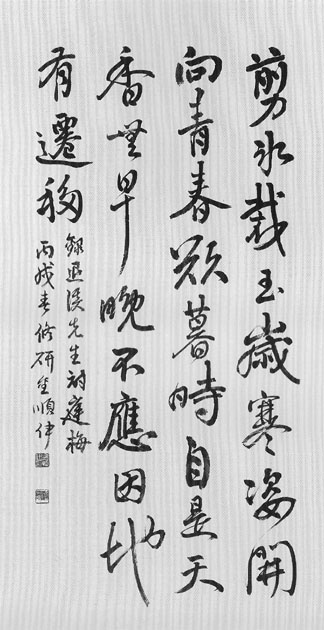 剪冰裁玉歲寒姿開
向青春欲暮時自是天
香無早晚不應因地
有遷移
錄退溪先生詩庭梅
丙戌春修研室順伊